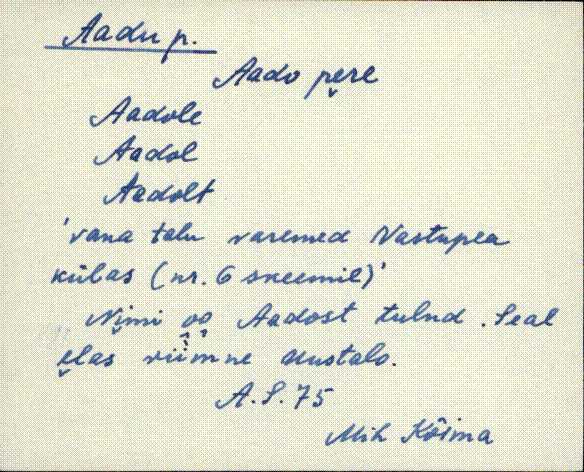 Aadu p.
Aado pere
Aadole
Aadol
Aadolt
'vana talu varemed Nastupea
külas (nr. 6 skeemil)'
Nimi oo Aadost tulnd. Seal
elas viimne Austalo.
A.S. 75
Mih Kõima